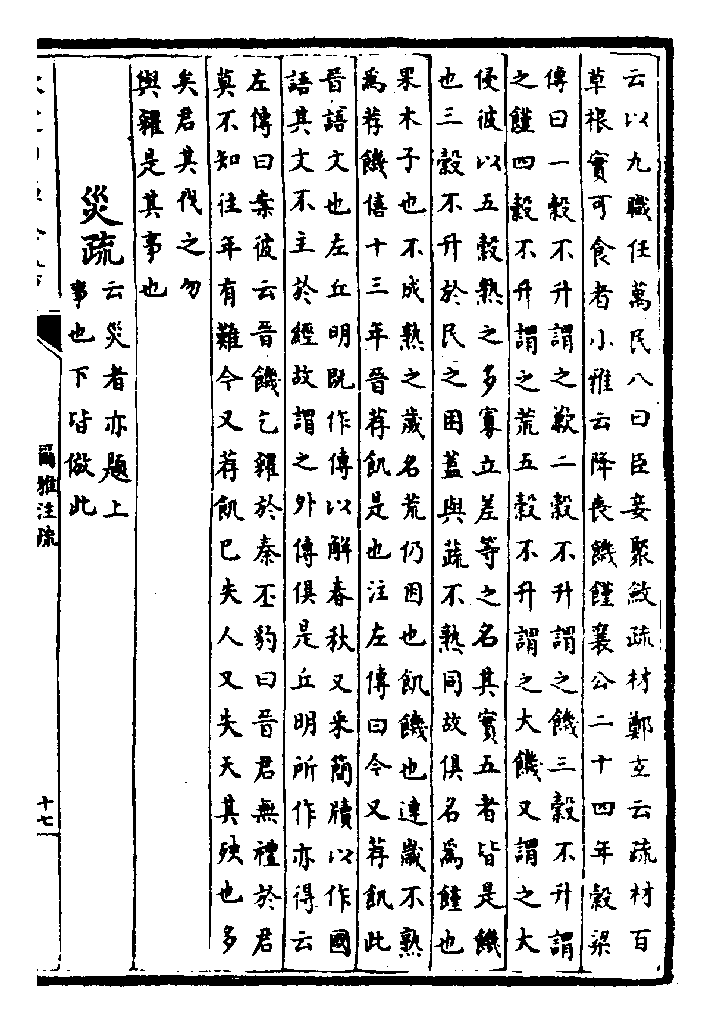 云以九職任萬民八曰臣妾聚斂疏材鄭玄云疏材百
草根實可食者小雅云降喪饑饉襄公二十四年穀梁
傳曰一穀不升謂之歉二穀不升謂之饑三穀不升謂
之饉四穀不升謂之荒五穀不升謂之大饑又謂之大
侵彼以五穀熟之多寡立差等之名其實五者皆是饑
也三穀不升於民之困蓋與蔬不熟同故俱名爲饉也
果木子也不成熟之歲名荒仍因也飢饑也連歲不熟
爲荐饑僖十三年晉荐飢是也注左傳曰今又荐飢此
晉語文也左丘明既作傳以解春秋又采簡牘以作國
語其文不主於經故謂之外傳俱是丘明所作亦得云
左傳曰案彼云晉饑乞糴於秦丕豹曰晉君無禮於君
莫不知往年有難今又荐飢已失人又失天其殃也多
矣君其伐之勿
與糴是其事也
災疏
云災者亦題上
事也下皆倣此
爾雅注疏
十七